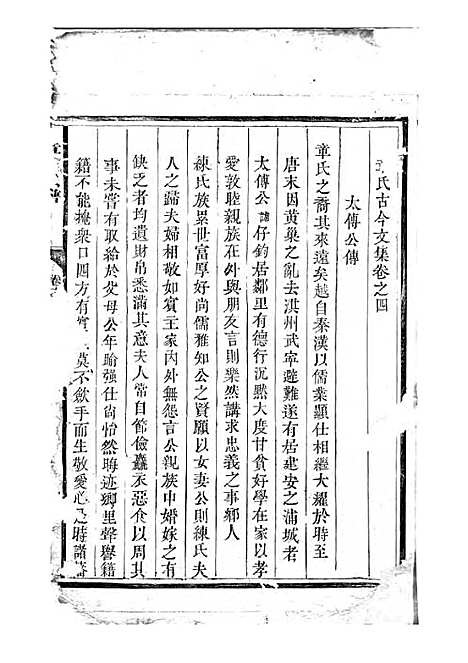 氏古今文集卷之四
太傳公傳
章氏之裔其來遠矣越自秦漢以儒業顯仕相繼大耀於時至
唐末因黃巢之亂去淇州武寧避難遂有居建安之浦城者
太傅公諱仔鈞居鄰里有德行沉默大度甘貧好學在家以孝
愛敦睦親族在外與朋友言則樂然講求忠義之事鄉人
練氏族累世富厚好尚儒雅知公之賢願以女妻公則練氏夫
人之歸夫婦相敬如賓主家內外無怨言公親族中婚嫁之有
缺乏者均遺財帛悉滿其意夫人常自節儉麤衣惡食以周其
事未嘗有取給於父母公年踰强仕尚怡然晦迹鄉里聲譽籍
籍不能掩衆口四方有 莫不歛手而生敬愛心 時諸